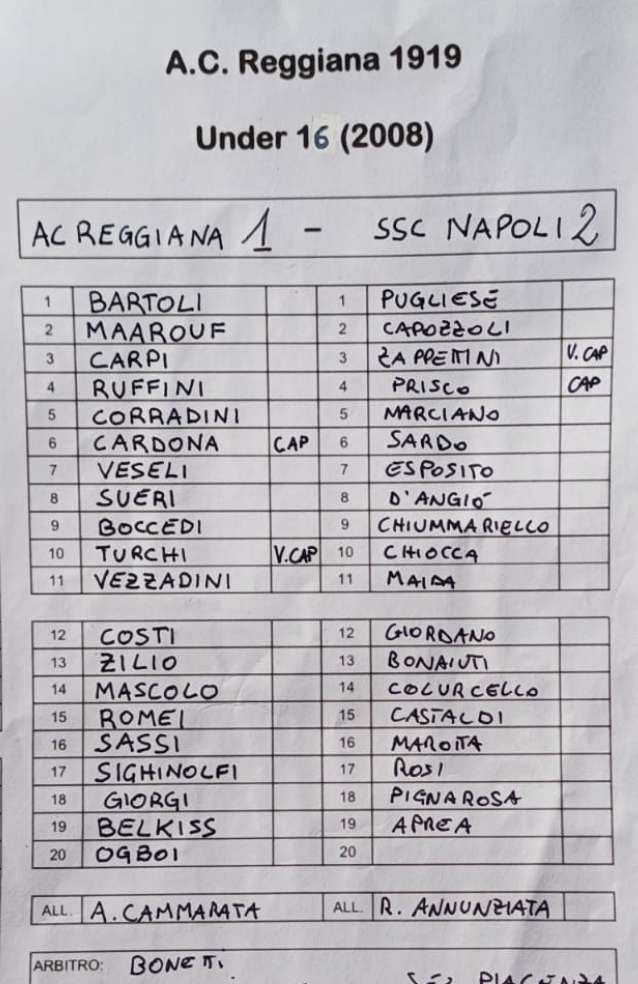 A.C. Reggiana 1919
Under 16 (2008)
AC REGGIANA 1 - SSC NAPOLI 2
1 BARTOLI 1 PUGLIESE
2 MAAROUF 2 CAPOZZOLI
3 CARPI 3 ZAPPETTINI V. CAP
4 RUFFINI 4 PRISCO CAP
5 CORRADINI 5 MARCIANO
6 CARDONA CAP 6 SARDO
7 VESELI 7 ESPOSITO
8 SUERI 8 D'ANGIÒ
9 BOCCEDI 9 CHIUMMARIELLO
10 TURCHI V.CAP 10 CHIOCCA
11 VEZZADINI 11 MAIDA
12 COSTI 12 GIORDANO
13 ZILIO 13 BONAIUTI
14 MASCOLO 14 COLURCELLO
15 ROMEI 15 CASTALDI
16 SASSI 16 MAROTTA
17 SIGHINOLFI 17 ROSI
18 GIORGI 18 PIGNAROSA
19 BELKISS 19 APREA
20 OGBOI 20
ALL. A. CAMMARATA ALL. R. ANNUNZIATA
ARBITRO: BONETTI
SEZ PIACENZA